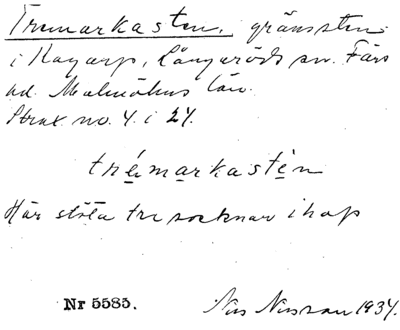 Tremarkasten, gränssten
i Hagarp, Långaröds sn. Färs
hd. Malmöhus län.
Strax no. 4. i 27.
trémarkastén
Här stöta tre socknar ihop
Nr 5583.
Nils Nilsson 1934.